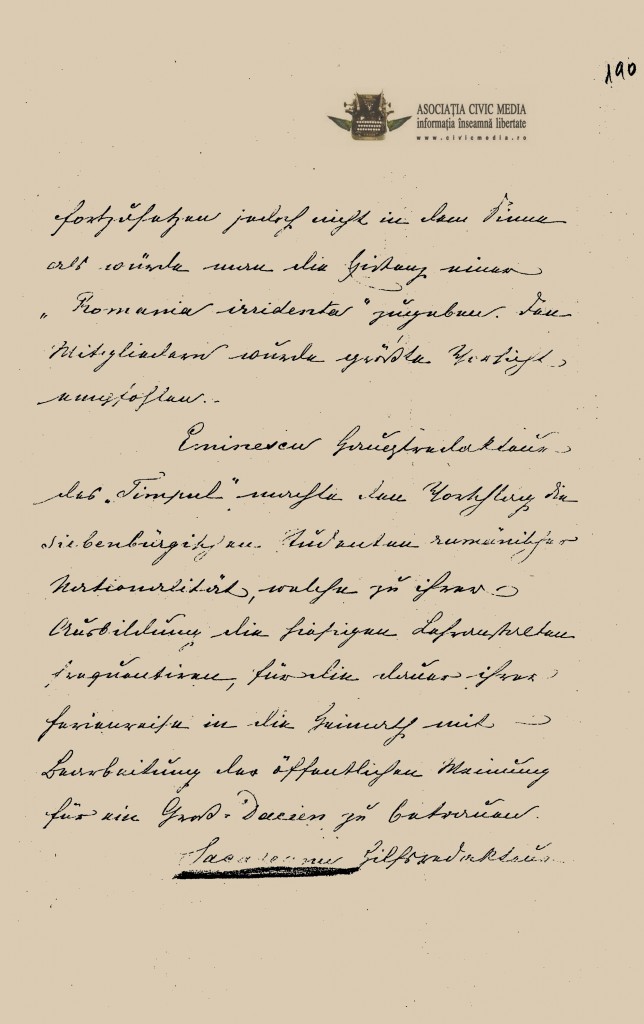 190
ASOCIAȚIA CIVIC MEDIA
informația înseamnă libertate
www.civicmedia.ro
fortzusetzen jedoch nicht in dem Sinne
als würde man die Existenz einer
„Romania irridenta" zugeben. Den
Mitgliedern wurde größte Vorsicht
empfohlen.
Eminescu Hauptredakteur
des „Timpul" machte den Vorschlag die
siebenbürgischen Studenten rumänischer
Nationalität, welche zu ihrer
Ausbildung die hiesigen Lehranstalten
frequentiren, für die dauer ihrer
Ferienreise in die Heimath mit
Bearbeitung der öffentlichen Meinung
für ein Groß-Dacien zu betrauen.
Hilfsredakteur